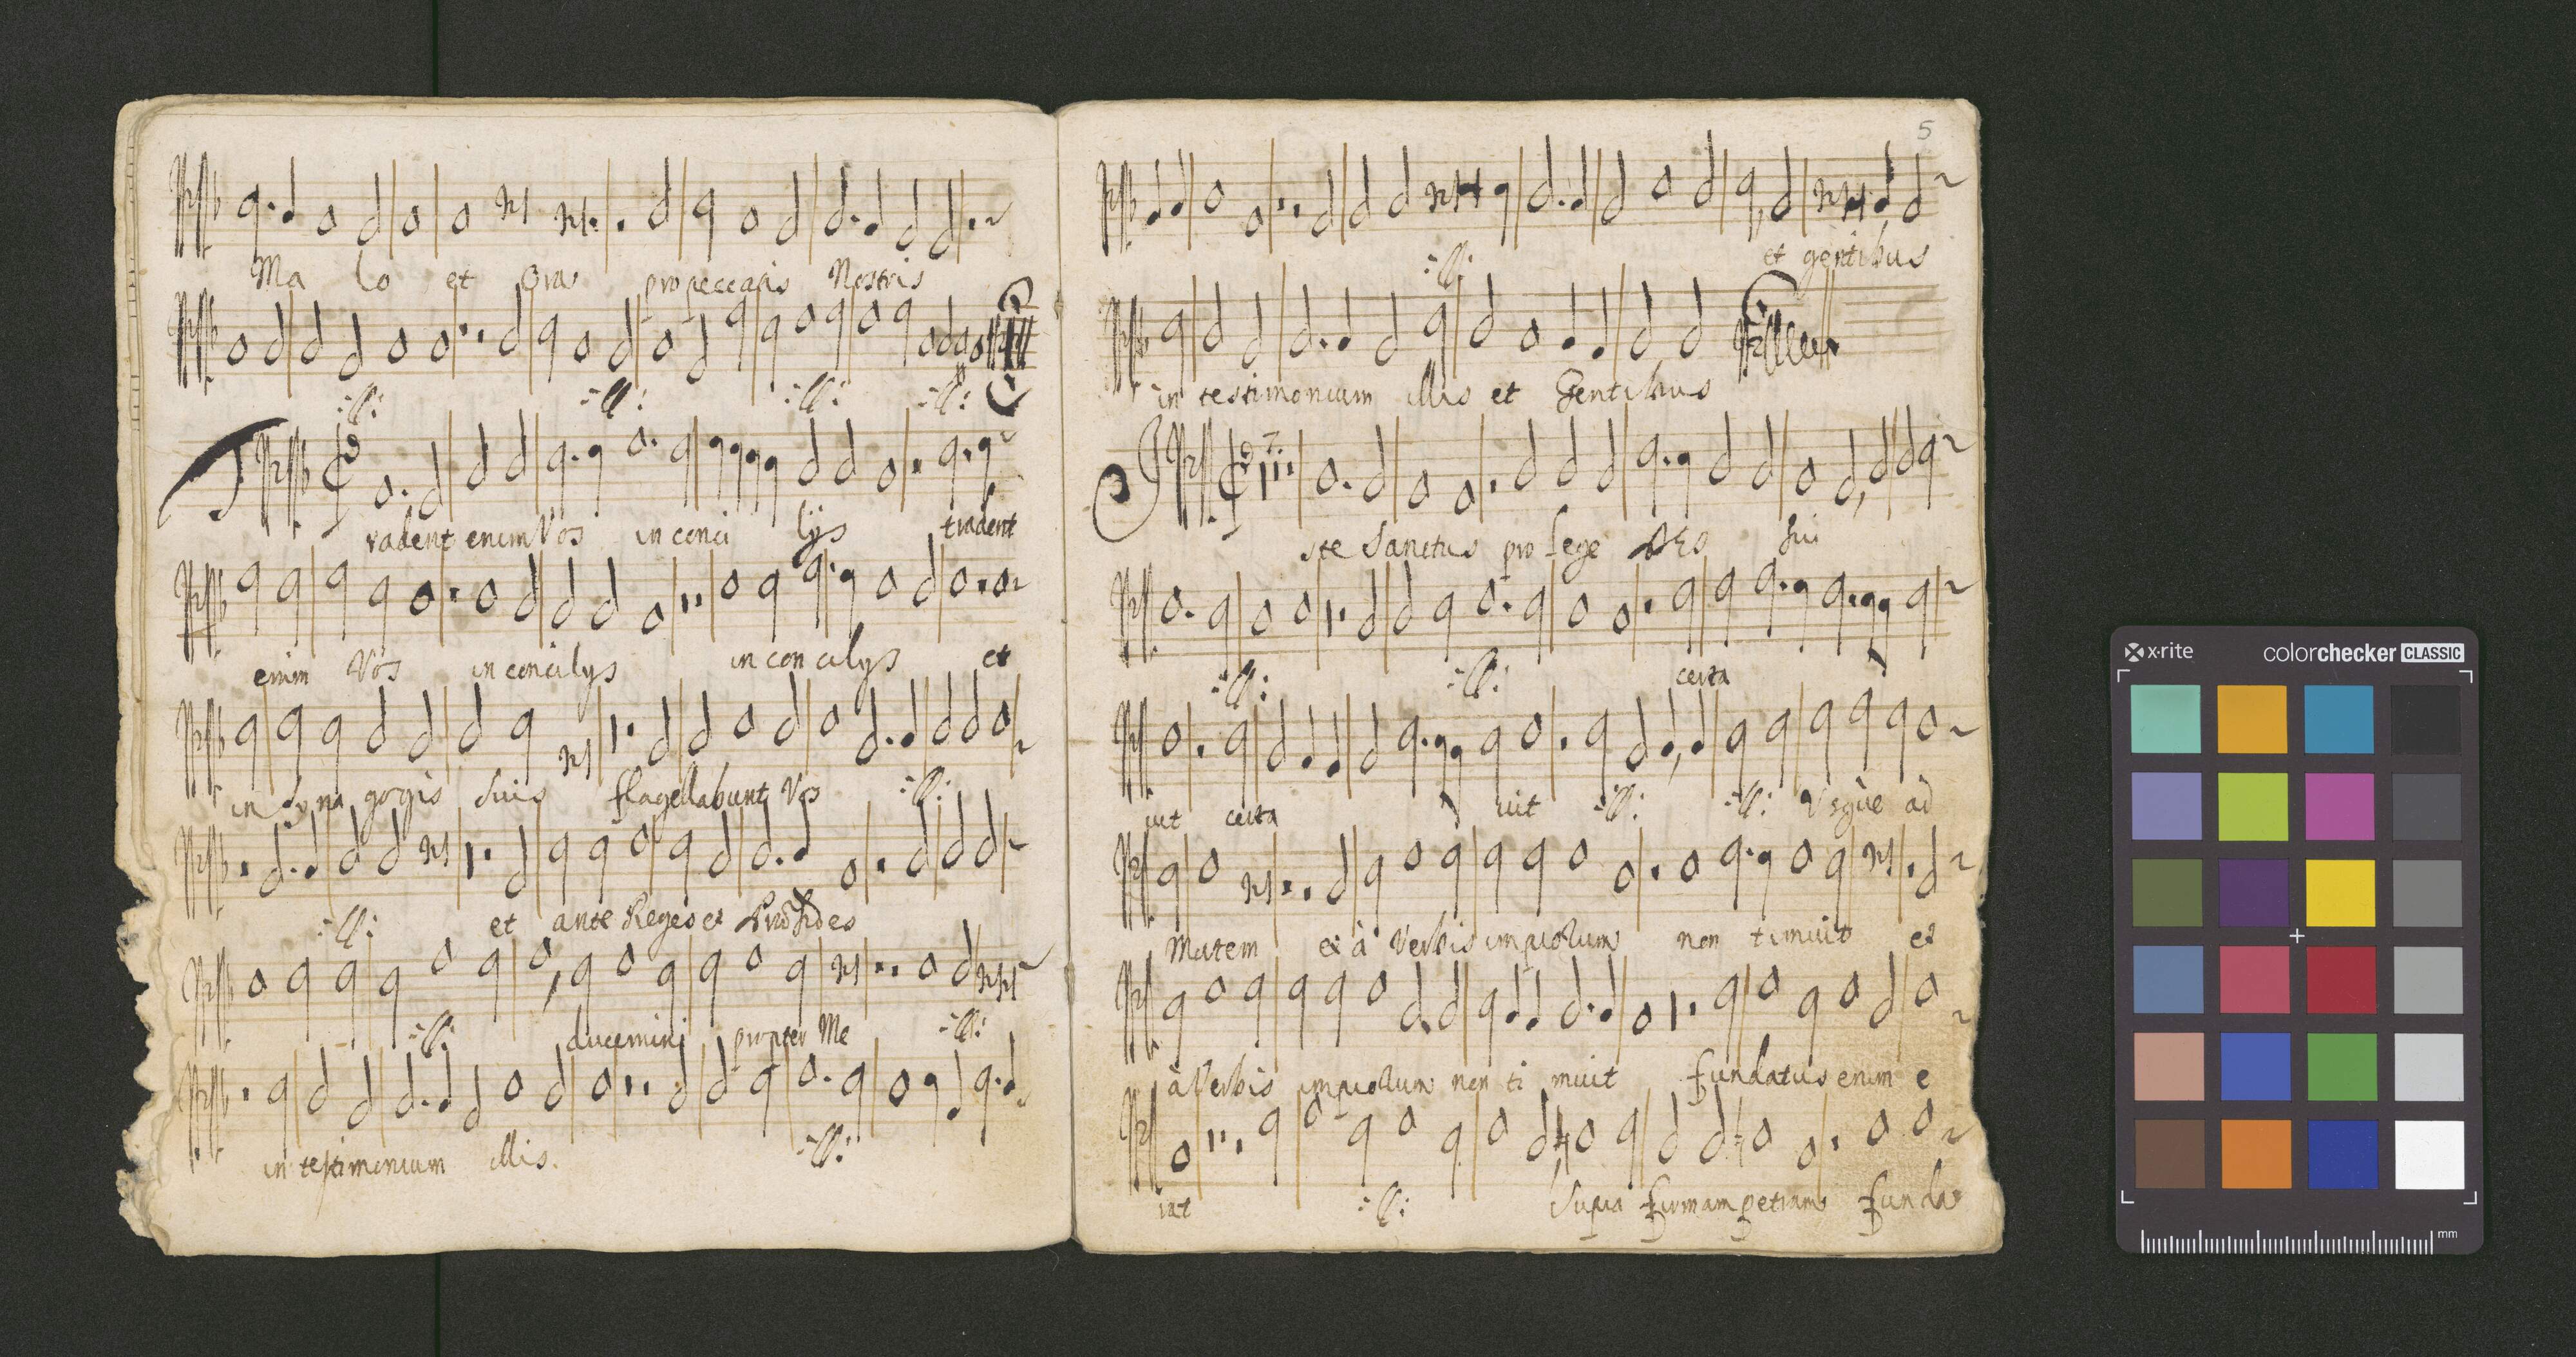 Ma lo et Oras pro peccatis Nostris
Tradent enim Vos in conci lijs tradent
enim Vos in concilijs in con cilijs et
in Syna gogis Suis flagellabunt Vos
et ante Reges et
ducemini propter Me
in testimonium illis.
5
et gentibus
in testimonium illis et Gentibus
Iste Sanctus pro Lege DEs Sui
certa
uit certa uit Usque ad
Mortem et à Verbis impiorum non timuit et
à Verbis impiorum non ti muit fundatus enim e
rat Supra firmam petram funda
x-rite colorchecker CLASSIC
mm